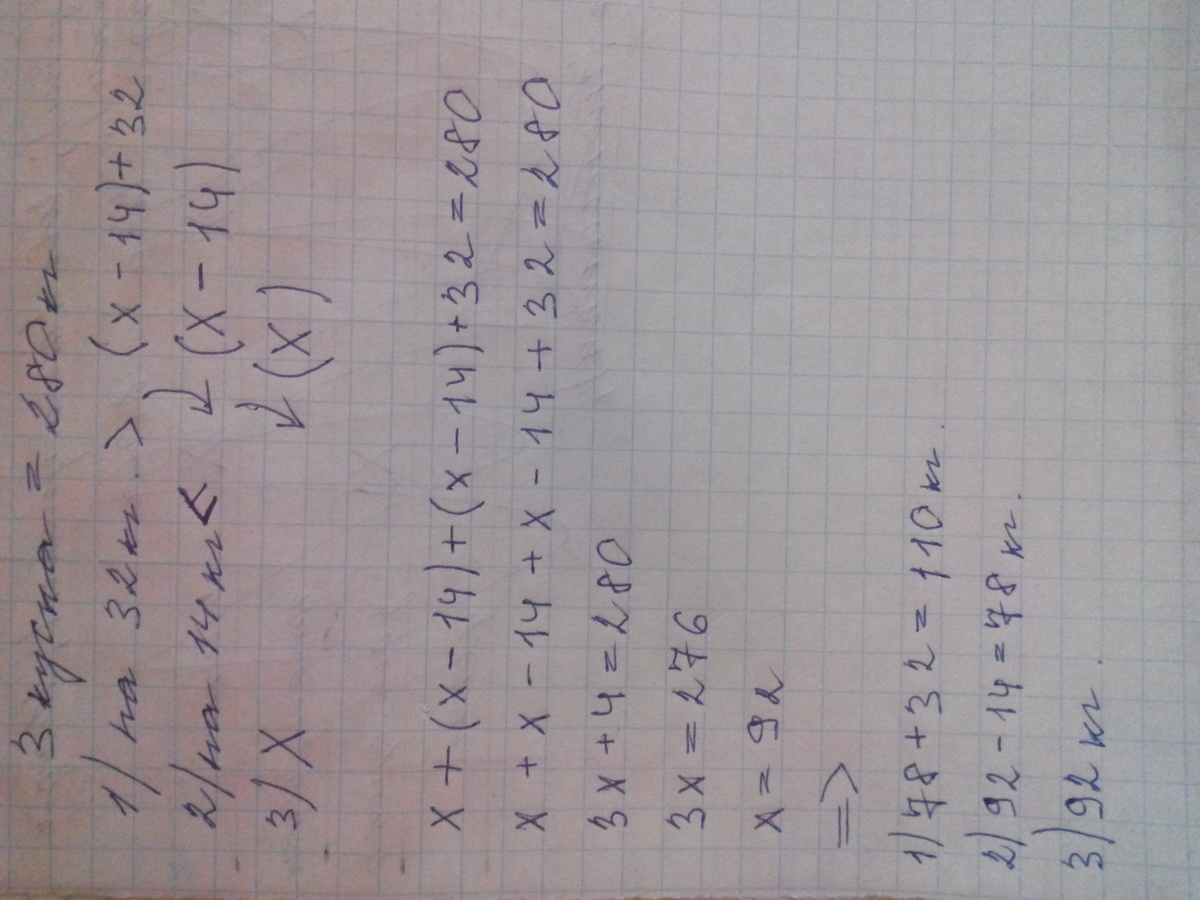 3 куска = 280 кг
1) на 32 кг. > (х - 14) + 32
2) на 14 кг < ↓ (х - 14)
3) Х ↓ (х)
х + (х - 14) + (х - 14) + 32 = 280
х + х - 14 + х - 14 + 32 = 280
3х + 4 = 280
3х = 276
х = 92
=>
1) 78 + 32 = 110 кг.
2) 92 - 14 = 78 кг.
3) 92 кг.